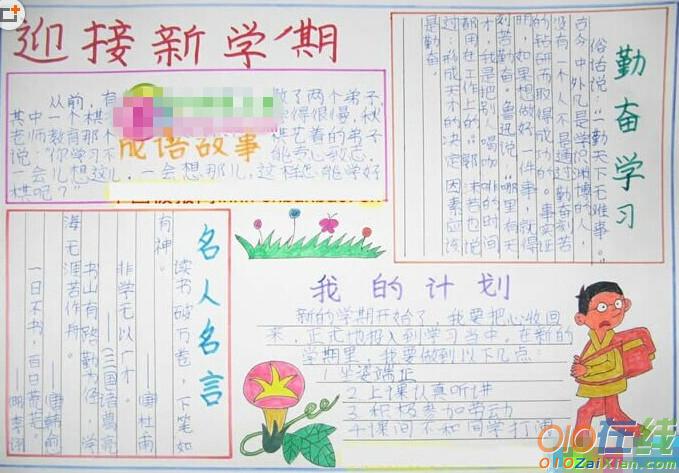 迎接新学期
从前,有
教了两个弟子,
其中一个棋
学得很慢,秋
老师教育那个
棋艺差的弟子
说:“你学习不
能专心致志,
一会儿想这儿,一会想那儿,这样怎能学好
棋呢?”
成语故事
勤奋学习
俗话说:“勤天下无难事。”
古今中外凡是学识渊博的人,
没有一个人不是通过勤奋刻苦
的钻研而取得成功的。事实证
明,如果想做好一件事,就得
刻苦勤奋。鲁迅说:“哪里有天
才,我是把别人喝咖啡的时间
都用在工作上的。”郭沫若也说
过,形成天才的决定因素应该
是勤奋。
名人名言
读书破万卷,下笔如
有神。
——唐杜甫
非学无以广才。
——《三国诸葛亮
书山有路勤为径,学
海无涯苦作舟。
——唐韩愈
一日不书,百日荒芜。
——明李诩
我的计划
新的学期开始了,我要把心收回
来,正式地投入到学习当中。在新的
学期里,我要做到以下几点:
1坐姿端正
2上课认真听讲
3积极参加劳动
4课间不和同学打
010在线
010ZaiXian.Com